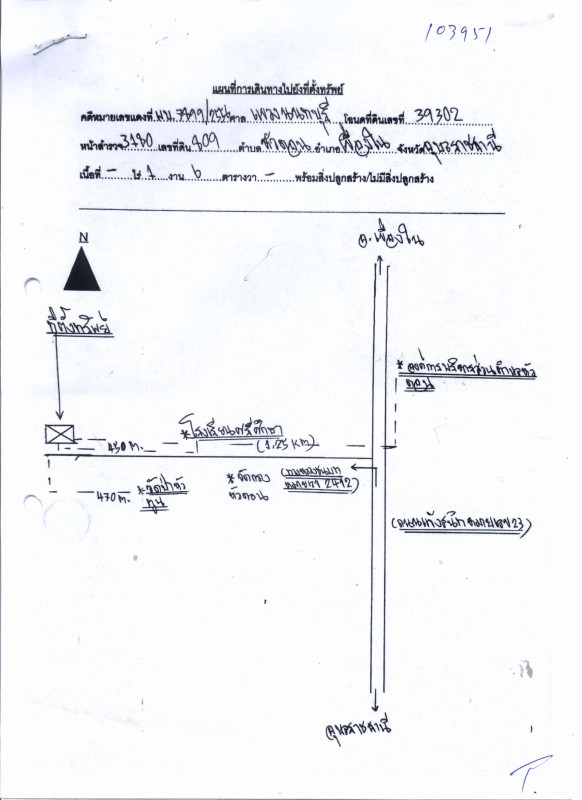 103951
แผนที่การเดินทางไปยังที่ตั้งทรัพย์
คดีหมายเลขแดงที่ ผบ. 7499/2554 ศาล แขวงนนทบุรี โฉนดที่ดินเลขที่ 39302
หน้าสำรวจ 3180 เลขที่ดิน 809 ตำบล หัวดอน อำเภอ เขื่องใน จังหวัด อุบลราชธานี
เนื้อที่ - ไร่ 1 งาน 6 ตารางวา - พร้อมสิ่งปลูกสร้าง/ไม่มีสิ่งปลูกสร้าง
N
อ.เขื่องใน
ที่ตั้งทรัพย์
* องค์การบริหารส่วนตำบลหัว
ดอน
* โรงเรียนศรีศึกษา
450 m.
(1.25 km)
470 m.
* วัดป่าหัว
* วัดกลาง
หัวดอน
(ทางหลวงชนบท
หมายเลข 2412)
(ถนนแจ้งสนิท หมายเลข 23)
อุบลราชธานี